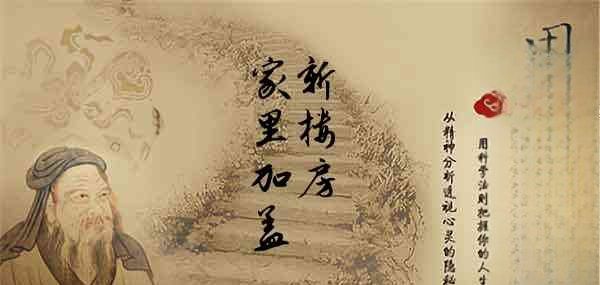 用科学法则把握你的人生
从精神分析透视心灵的隐秘
新楼房
家里加盖